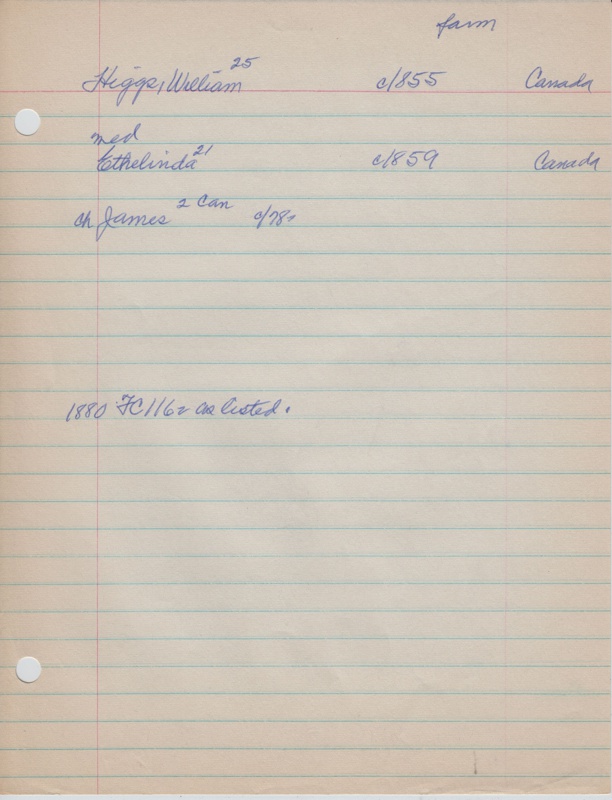 farm
Higgs, William 25 c/1855 Canada
med
Ethelinda 21 c/1859 Canada
ch James 2 Can c/78
1880 FC116 as listed.